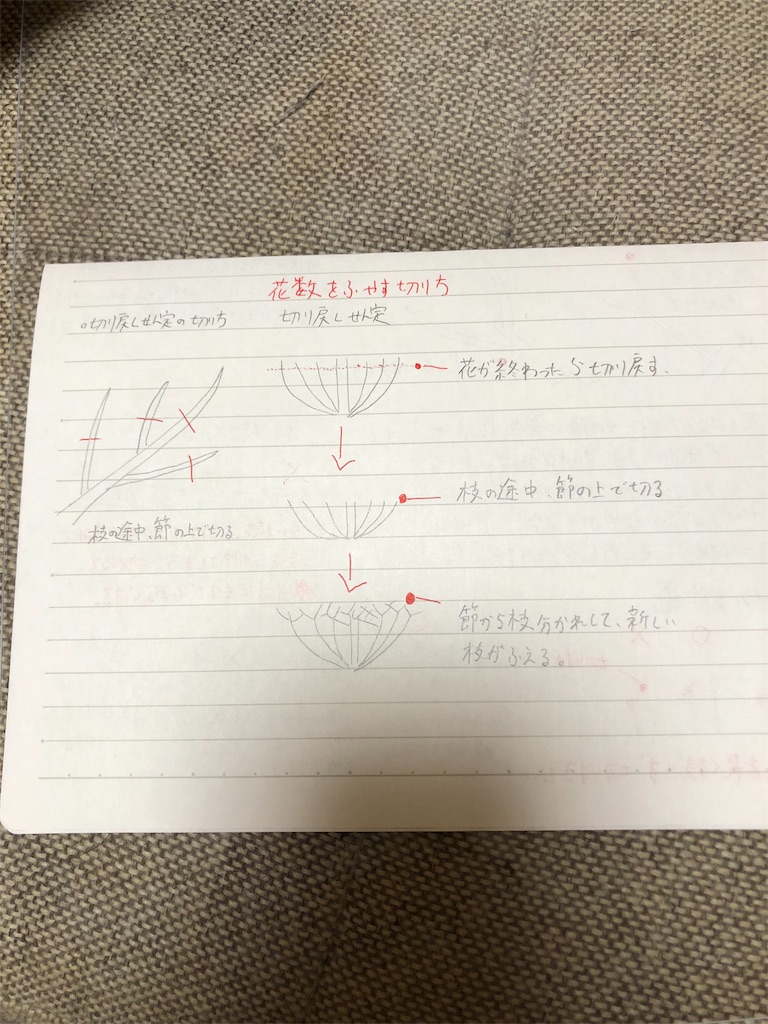 花数をふやす切り方
○切り戻しせん定の切り方
切り戻しせん定
花が終わったら切り戻す.
枝の途中、節の上で切る
枝の途中、節の上で切る
節から枝分かれして、新しい
枝がふえる。